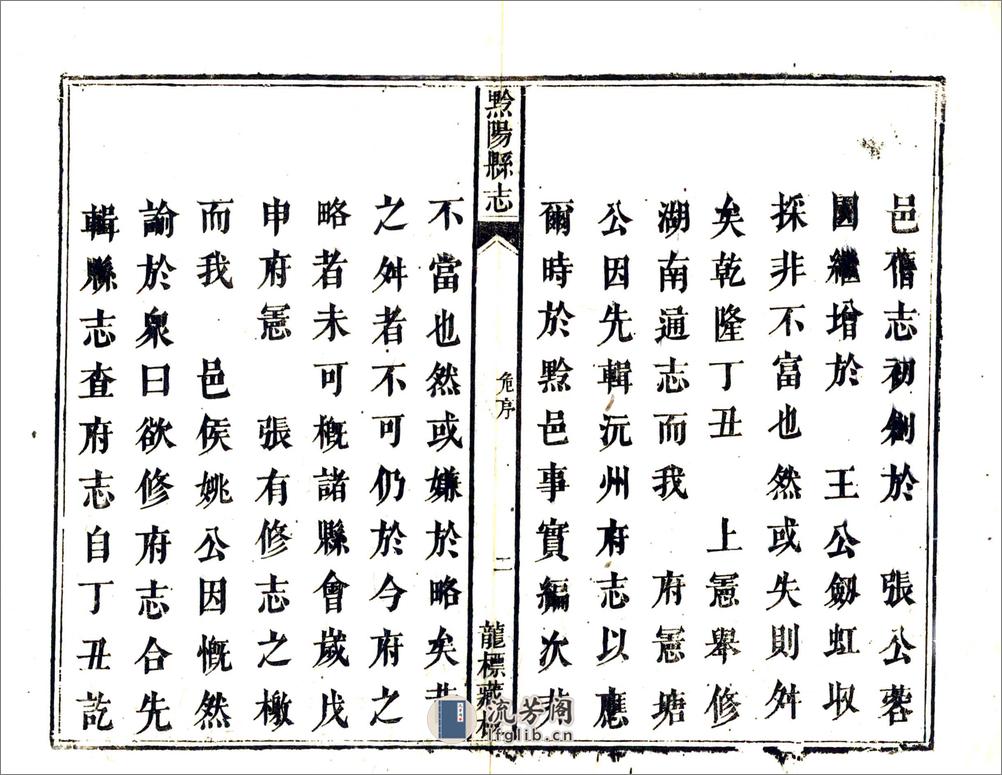 邑舊志初創於 張公蓉
園繼增於 王公劔虹収
採非不富也然或失則舛
矣乾隆丁丑 上憲舉修
湖南通志而我 府憲塘
公因先輯沅州府志以應
爾時於黔邑事實編次
黔陽縣志
危序
二
龍標藏板
不當也然或嫌於略矣
之舛者不可仍於今府之
略者未可概諸縣會歲戊
申府憲 張有修志之檄
而我 邑侯姚公因慨然
諭於衆曰欲修府志合先
輯縣志查府志自丁丑訖
流芳阁
lfglib.cn